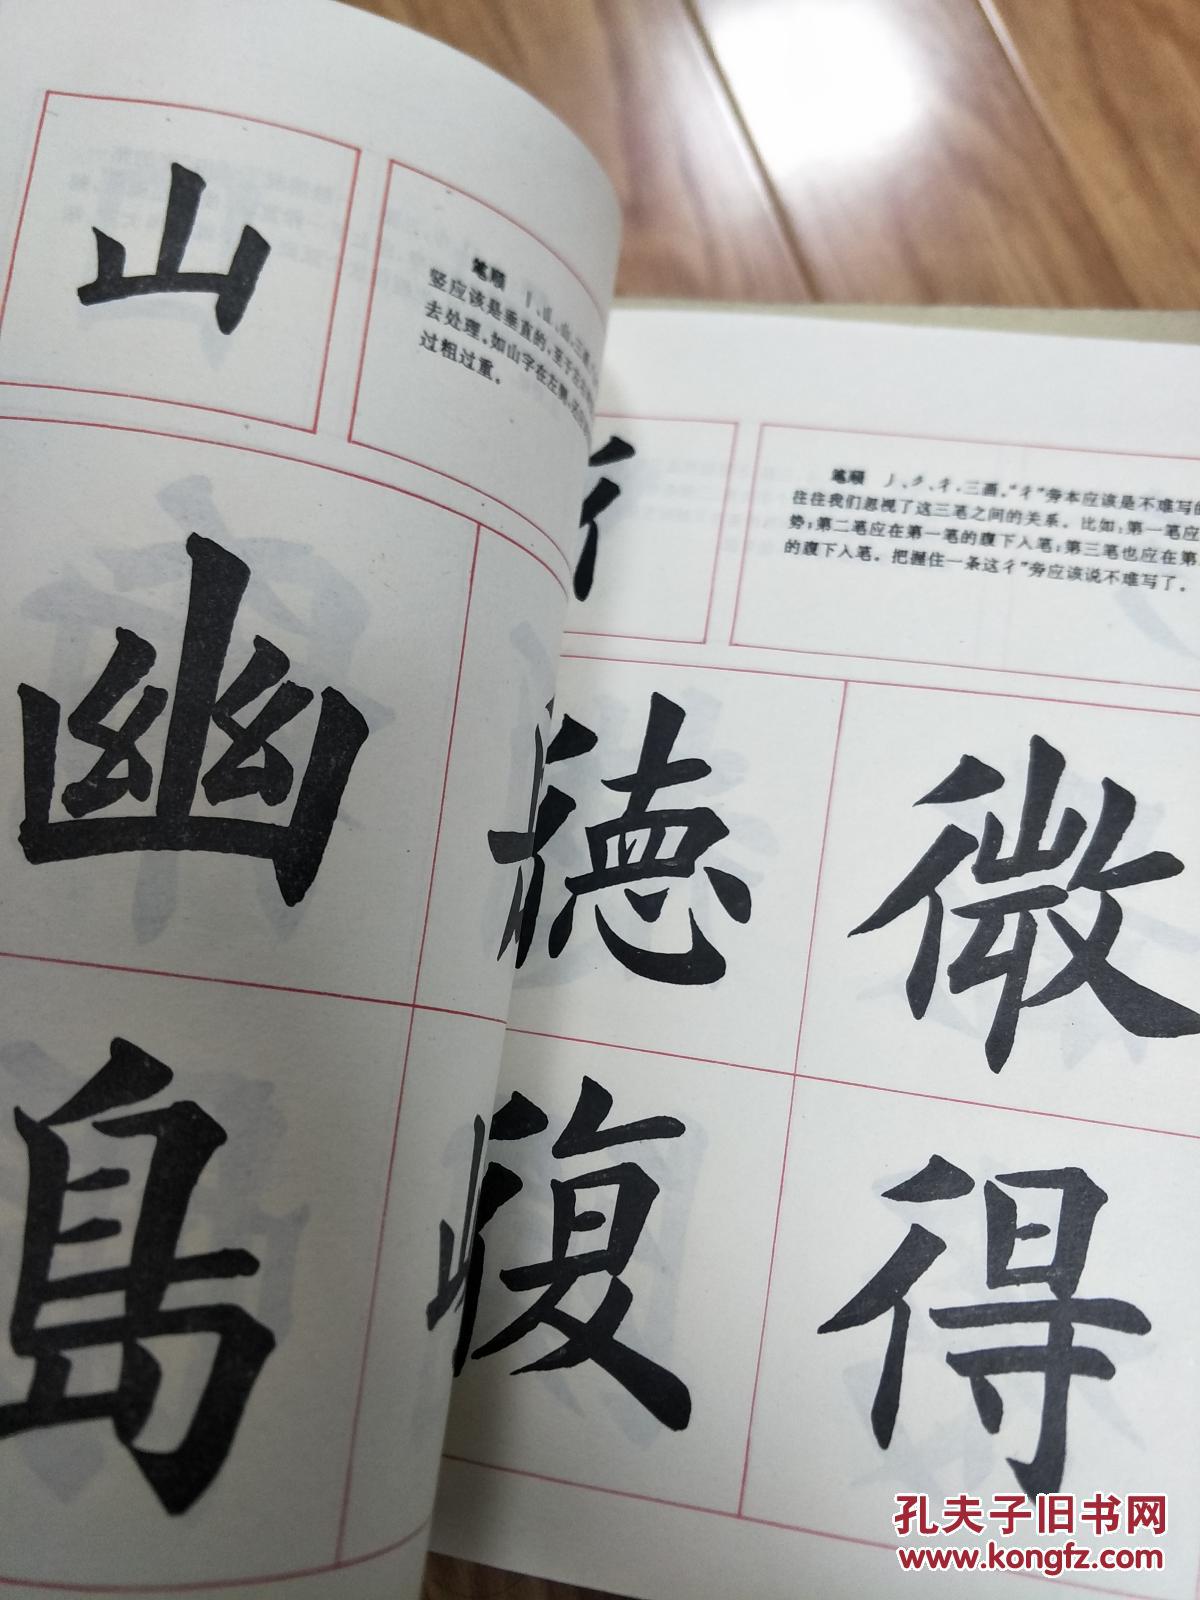 山
笔顺 丨、
竖应该是垂直的，至于左
去处理。如山字在左侧，
过粗过重。
幽
島
彳
笔顺 丿、彳、彳，三画。“彳”旁本应该是不难写的
往往我们忽视了这三笔之间的关系。比如：第一笔应
势；第二笔应在第一笔的腹下入笔；第三笔也应在第
的腹下入笔。把握住一条这彳”旁应该说不难写了。
德
微
復
得
孔夫子旧书网
www.kongfz.com